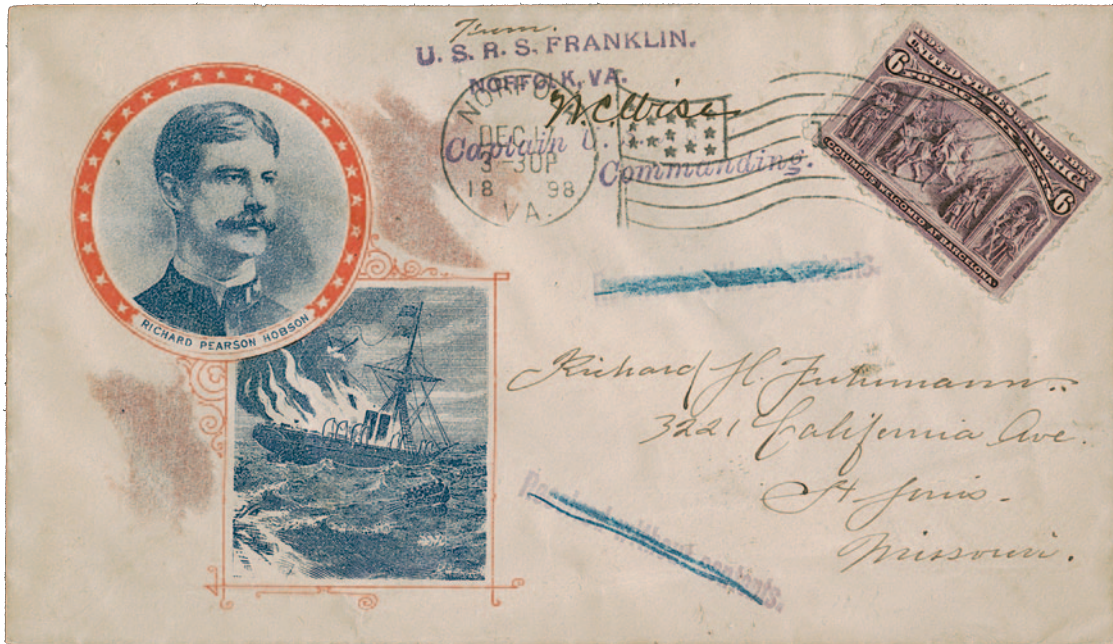 From.
U. S. R. S. FRANKLIN.
NORFOLK, VA.
W. C. Wise
Captain U.
Commanding.
NORFO
DEC 17
3-30P
18 98
VA.
1492 1892
UNITED STATES OF AMERICA
POSTAGE SIX CENTS
6 6
COLUMBUS WELCOMED AT BARCELONA
RICHARD PEARSON HOBSON
Richard H. Fuhrmann.
3221 California Ave.
St Louis.
Missouri.
without contents.